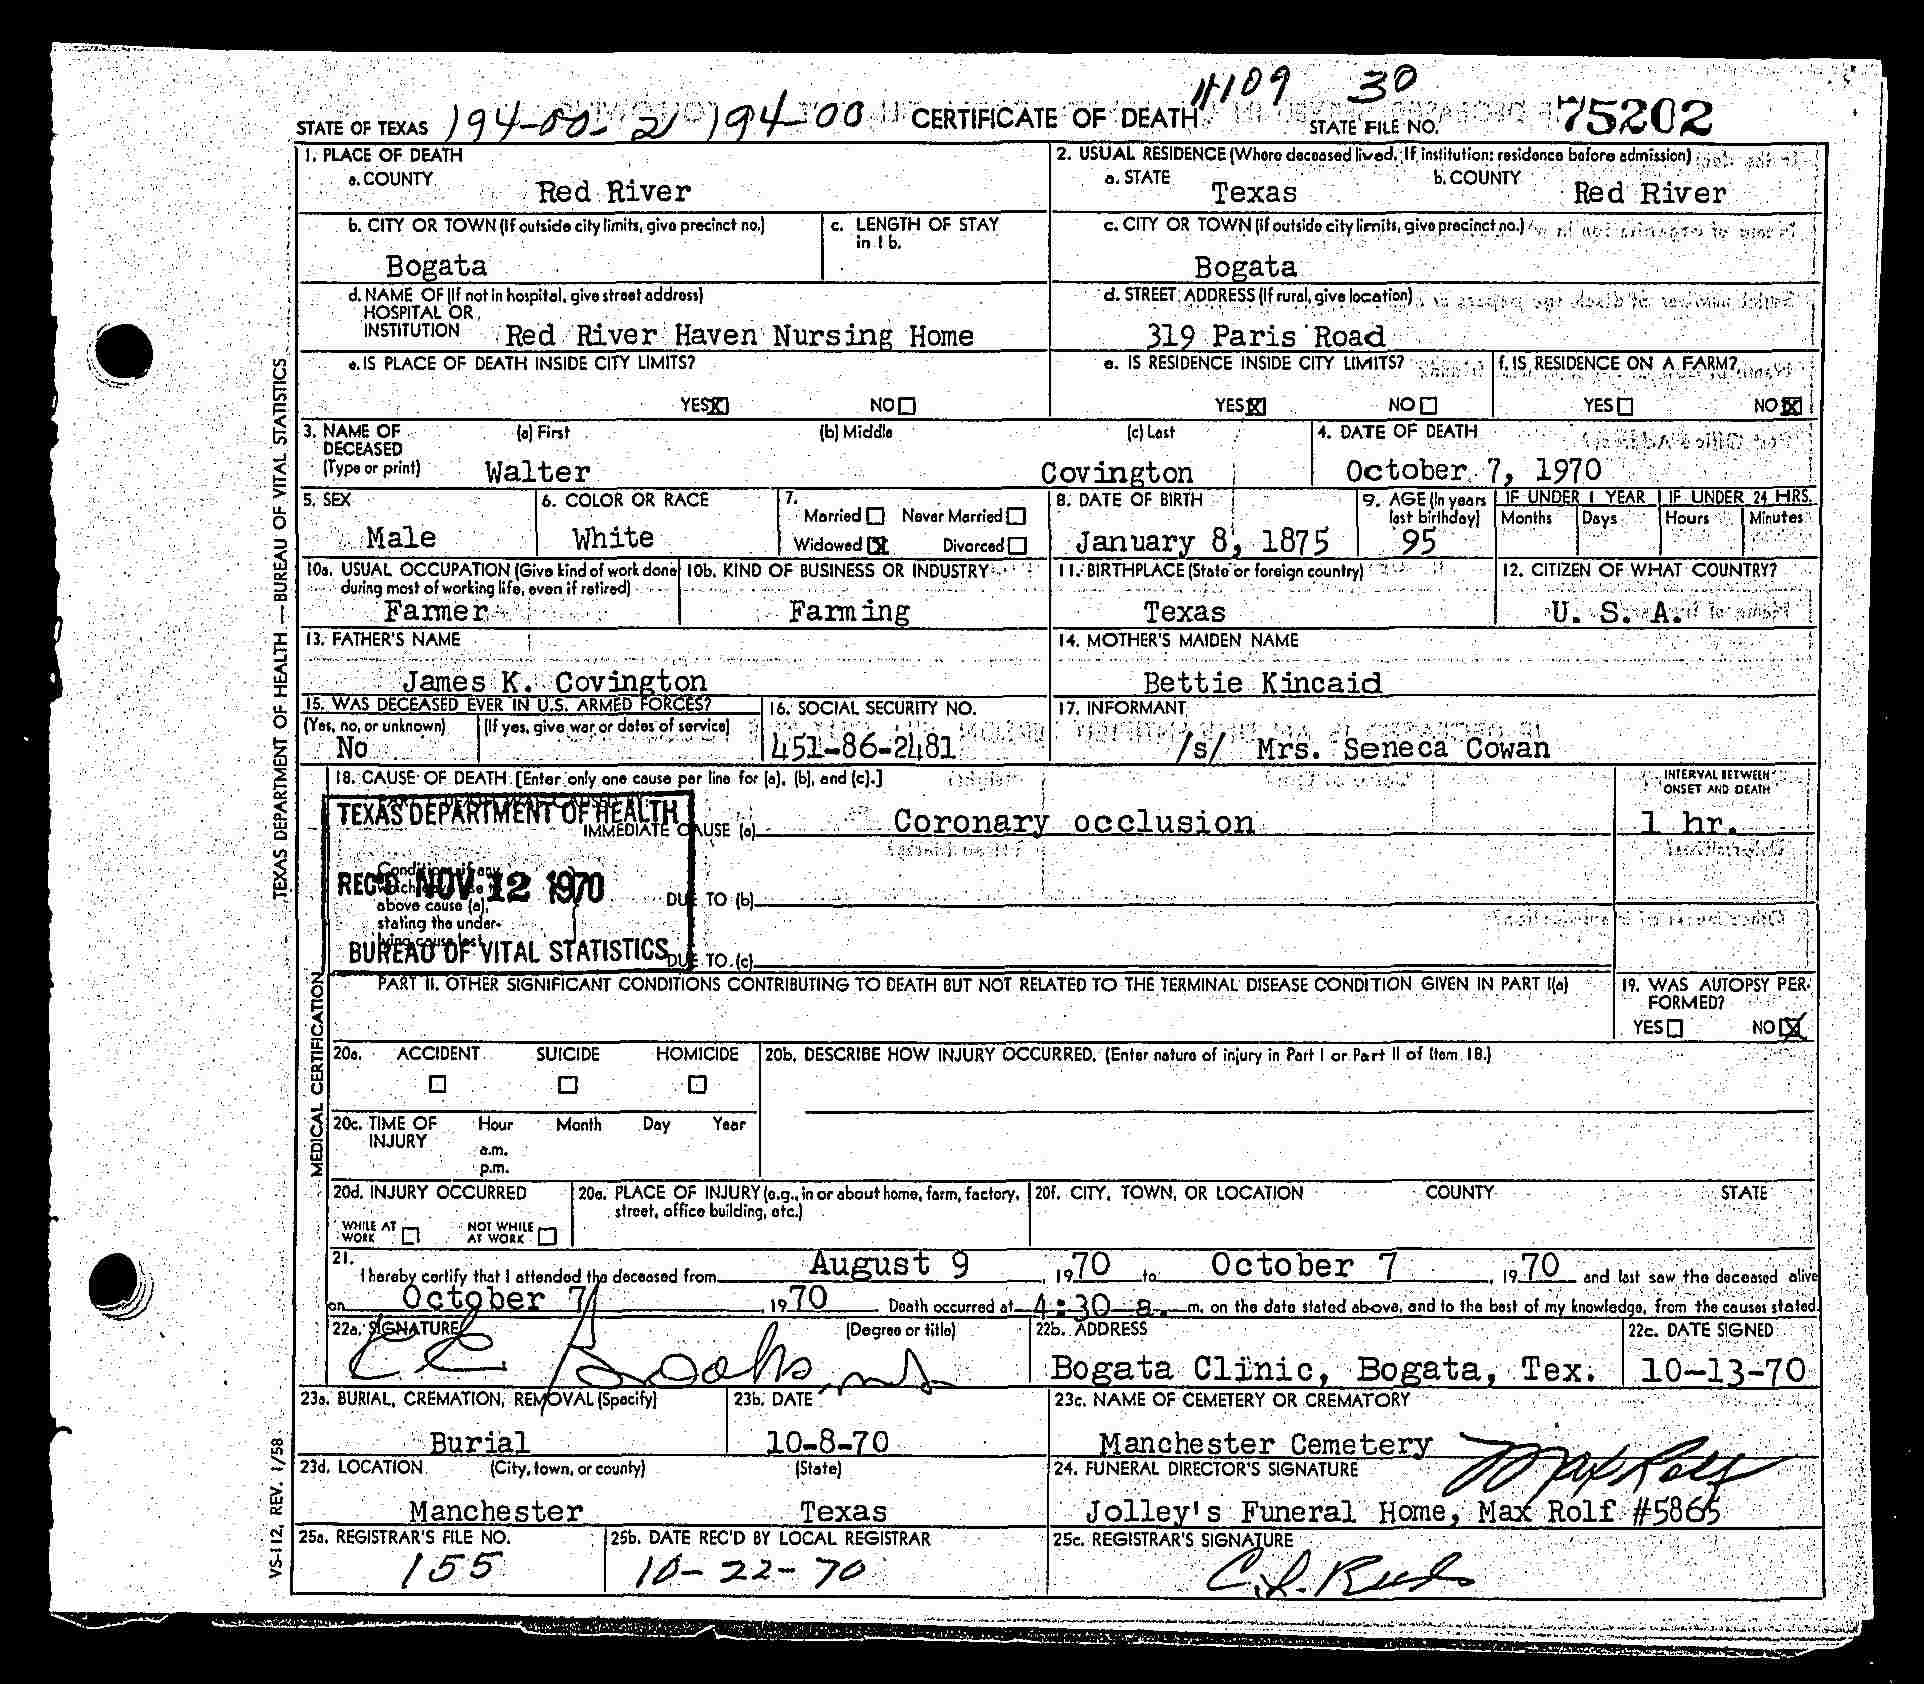 4109 30
STATE OF TEXAS 194-00-2 194-00 CERTIFICATE OF DEATH STATE FILE NO. 75202
1. PLACE OF DEATH
a. COUNTY Red River
2. USUAL RESIDENCE (Where deceased lived. If institution: residence before admission)
a. STATE Texas b. COUNTY Red River
b. CITY OR TOWN (If outside city limits, give precinct no.) Bogata
c. LENGTH OF STAY in 1 b.
c. CITY OR TOWN (if outside city limits, give precinct no.) Bogata
d. NAME OF (If not in hospital, give street address)
HOSPITAL OR
INSTITUTION Red River Haven Nursing Home
d. STREET ADDRESS (If rural, give location)
319 Paris Road
e. IS PLACE OF DEATH INSIDE CITY LIMITS?
YES X NO
e. IS RESIDENCE INSIDE CITY LIMITS?
YES X NO
f. IS RESIDENCE ON A FARM?
YES NO X
3. NAME OF DECEASED (Type or print)
(a) First (b) Middle (c) Last
Walter Covington
4. DATE OF DEATH
October 7, 1970
5. SEX
Male
6. COLOR OR RACE
White
7.
Married Never Married
Widowed X Divorced
8. DATE OF BIRTH
January 8, 1875
9. AGE (In years last birthday)
95
IF UNDER 1 YEAR IF UNDER 24 HRS.
Months Days Hours Minutes
10a. USUAL OCCUPATION (Give kind of work done during most of working life, even if retired)
Farmer
10b. KIND OF BUSINESS OR INDUSTRY
Farming
11. BIRTHPLACE (State or foreign country)
Texas
12. CITIZEN OF WHAT COUNTRY?
U. S. A.
13. FATHER'S NAME
James K. Covington
14. MOTHER'S MAIDEN NAME
Bettie Kincaid
15. WAS DECEASED EVER IN U.S. ARMED FORCES?
(Yes, no, or unknown) (If yes, give war or dates of service)
No
16. SOCIAL SECURITY NO.
451-86-2481
17. INFORMANT
/s/ Mrs. Seneca Cowan
18. CAUSE OF DEATH [Enter only one cause per line for (a), (b), and (c).]
INTERVAL BETWEEN ONSET AND DEATH
TEXAS DEPARTMENT OF HEALTH
REC'D NOV 12 1970
BUREAU OF VITAL STATISTICS
IMMEDIATE CAUSE (a) Coronary occlusion 1 hr.
Conditions, if any,
which
above cause (a),
stating the under-
lying cause last.
DUE TO (b)
DUE TO (c)
PART II. OTHER SIGNIFICANT CONDITIONS CONTRIBUTING TO DEATH BUT NOT RELATED TO THE TERMINAL DISEASE CONDITION GIVEN IN PART I(a)
19. WAS AUTOPSY PERFORMED?
YES NO X
20a. ACCIDENT SUICIDE HOMICIDE
20b. DESCRIBE HOW INJURY OCCURRED. (Enter nature of injury in Part I or Part II of Item 18.)
20c. TIME OF INJURY Hour Month Day Year
a.m.
p.m.
20d. INJURY OCCURRED
WHILE AT WORK NOT WHILE AT WORK
20e. PLACE OF INJURY (e.g., in or about home, farm, factory, street, office building, etc.)
20f. CITY, TOWN, OR LOCATION COUNTY STATE
21.
I hereby certify that I attended the deceased from August 9, 1970 to October 7, 1970 and last saw the deceased alive
on October 7, 1970 Death occurred at 4:30 a. m. on the date stated above, and to the best of my knowledge, from the causes stated.
22a. SIGNATURE (Degree or title)
22b. ADDRESS
Bogata Clinic, Bogata, Tex.
22c. DATE SIGNED
10-13-70
23a. BURIAL, CREMATION, REMOVAL (Specify)
Burial
23b. DATE
10-8-70
23c. NAME OF CEMETERY OR CREMATORY
Manchester Cemetery
23d. LOCATION (City, town, or county) (State)
Manchester Texas
24. FUNERAL DIRECTOR'S SIGNATURE
Max Rolf
Jolley's Funeral Home, Max Rolf #5865
25a. REGISTRAR'S FILE NO.
155
25b. DATE REC'D BY LOCAL REGISTRAR
10-22-70
25c. REGISTRAR'S SIGNATURE
TEXAS DEPARTMENT OF HEALTH — BUREAU OF VITAL STATISTICS
MEDICAL CERTIFICATION
VS-112, REV. 1/58